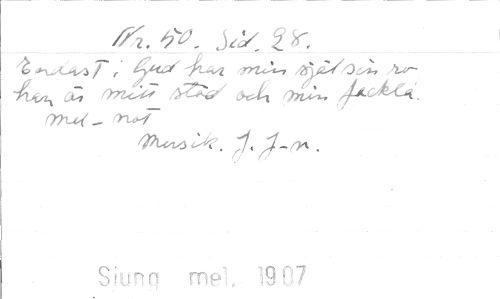 Nr. 50. Sid. 28.
Endast i Gud har min själ sin ro
han är mitt stöd och min fackla.
mel - not
Musik. J. J-n.
Sjung mel. 1907